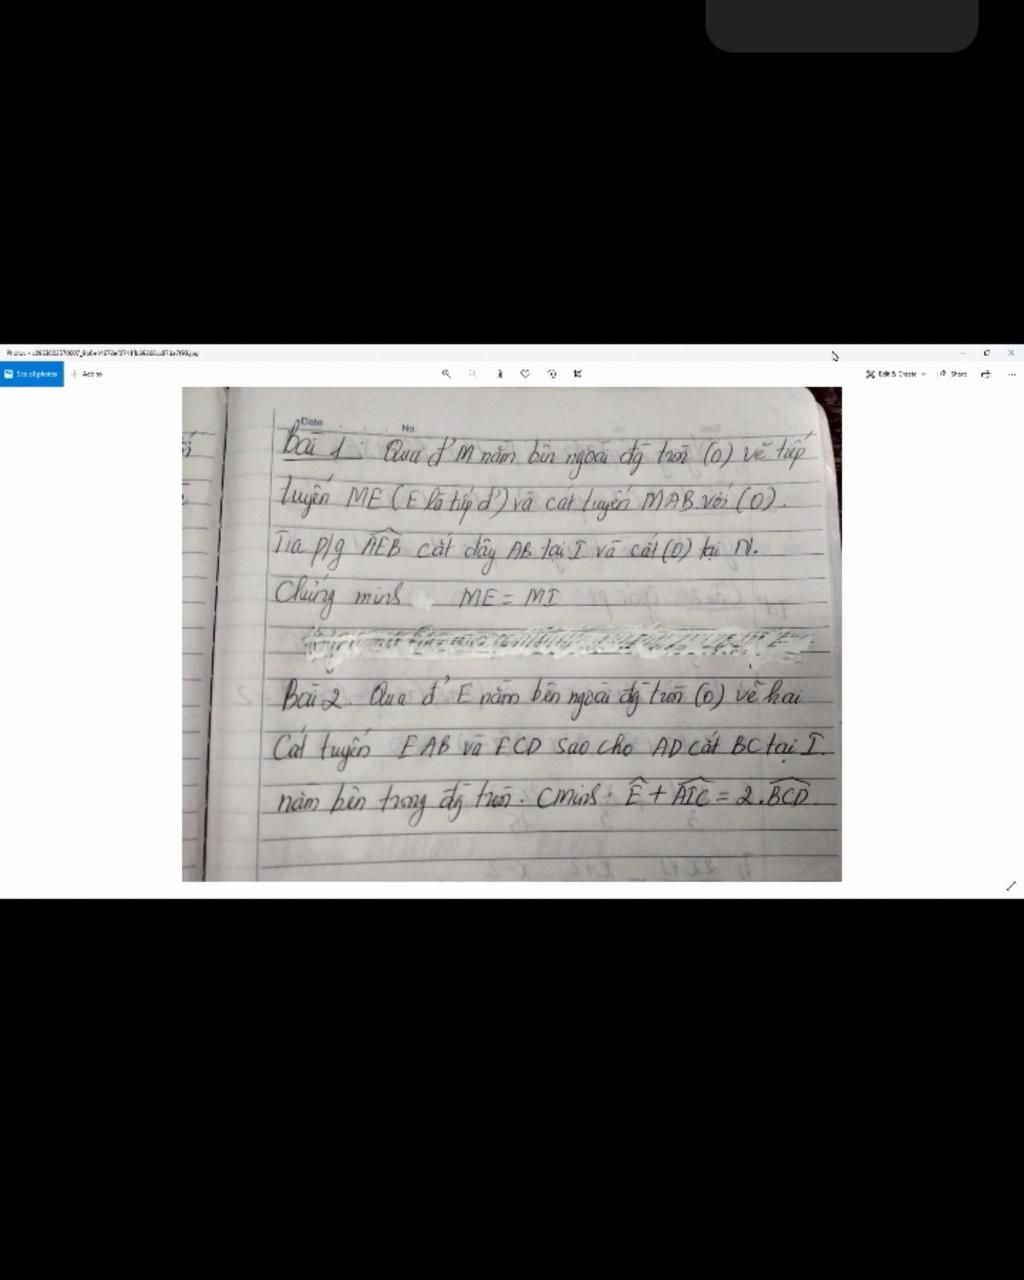 See all photos
Add to
Edit & Create
Share
Date
No.
Bài 1 : Qua đ' M nằm bên ngoài đg tròn (O) vẽ tiếp
tuyến ME (E là tiếp đ') và cát tuyến MAB với (O).
Tia p/g AEB cắt dây AB tại I và cắt (O) tại N.
Chứng minh ME = MI
Bài 2. Qua đ' E nằm bên ngoài đg tròn (O) vẽ hai
Cát tuyến EAB và ECD sao cho AD cắt BC tại I.
nằm bên trong đg tròn. Cminh: Ê + AIC = 2.BCD